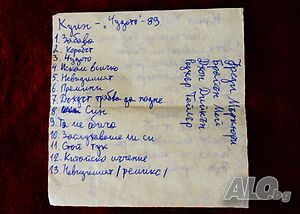 Куин - "Чудото" - 89
1. Забава
2. Корабът
3. Чудото
4. Искам всичко
5. Невидимият
6. Премини
7. Дъждът трябва да падне
8. Син
9. Тя не обича
10. Заслужаваше ли си
11. Стой тук
12. Китайско мъчение
13. Невидимият /ремикс/
Фреди Меркюри
Брайън Мей
Джон Дийкън
Роджър Тейлър
ALO.bg